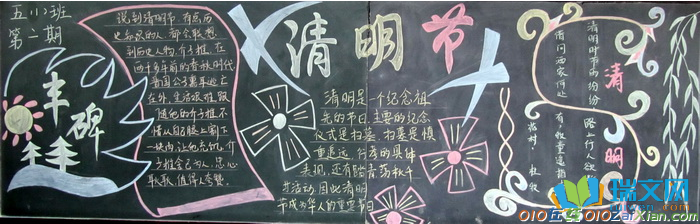 五(1)班
第二期
丰碑
说到清明节，有历
史知识的人，都会联想
到历史人物介子推。在
两千多年前的春秋时代
晋国公子重耳逃亡
在外，生活艰难，跟
随他的介子推不
惜从自己腿上割下
一块肉让他充饥。介
子推舍己为人，忠心
耿耿，值得人尊赞。
清明节
清明是一个纪念祖
先的节日，主要的纪念
仪式是扫墓，扫墓是慎
重追远、行孝的具体
表现，还有踏青荡秋千
等活动，因此清明
节成为华人的重要节日
清明
清明时节雨纷纷
路上行人欲
借问酒家何处
有牧童遥指
杏花村
杜牧
瑞文网
010ZaiXian.com